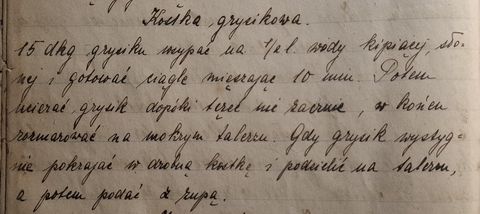 Kostka grysikowa.
15 dkg grysiku wsypać na ½ l. wody kipiącej, sło-
nej i gotować ciągle mięszając 10 min. Potem
ucierać grysik dopóki tężeć nie zacznie, w końcu
rozsmarować na mokrym talerzu. Gdy grysik wystyg-
nie pokrajać w drobną kostkę i podzielić na talerzu,
a potem podać z zupą.